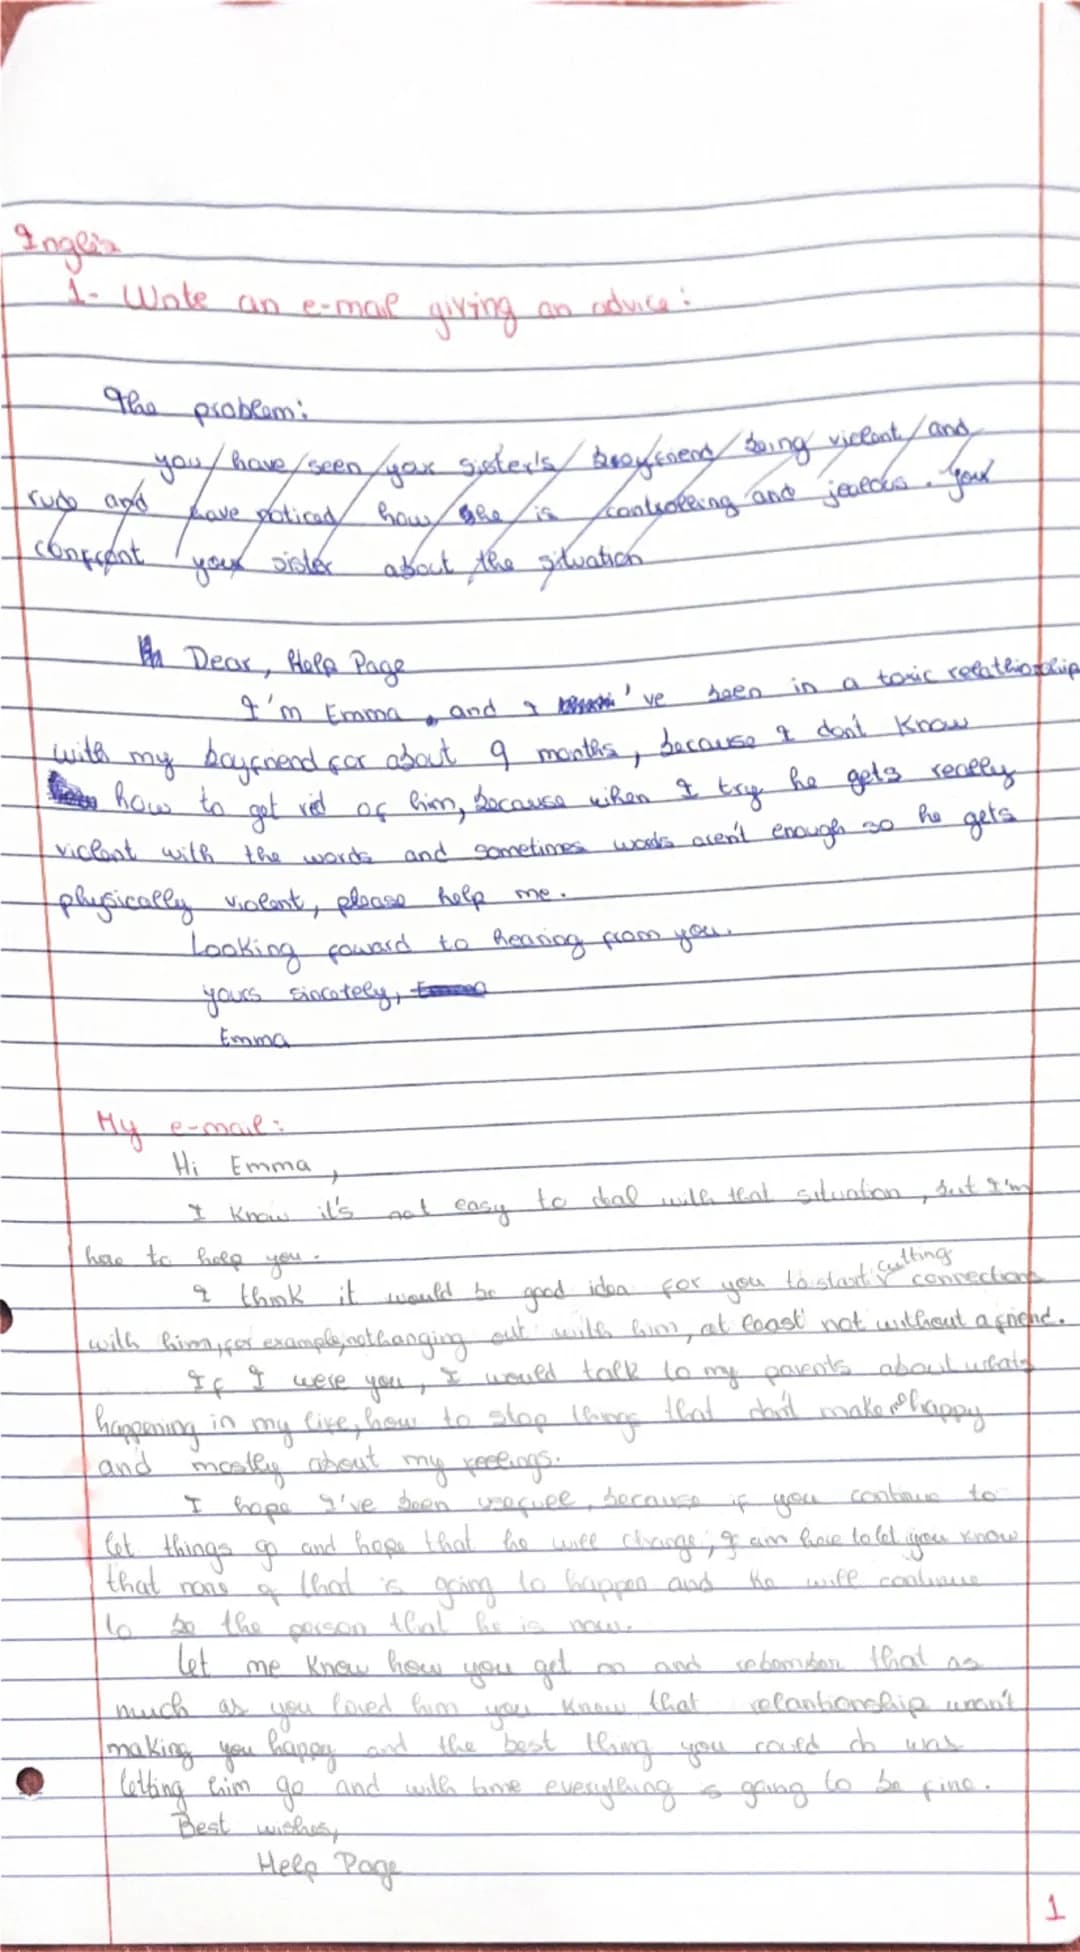 Inglês
1- Write an e-mail giving an advice:
The problem:
you have seen your sister's boyfriend being violent and
rude and have noticed how she is controlling and jealous. you
confront your sister about the situation
Dear, Help Page
I'm Emma, and I 've been in a toxic relathionship
with my boyfriend for about 9 months, because I don't know
how to get rid of him, because when I try he gets really
violent with the words and sometimes words aren't enough so he gets
physically violent, please help me.
Looking foward to hearing from you.
yours sincerely, Emma
Emma
My e-mail:
Hi Emma,
I know it's not easy to deal with that situation, but I'm
here to help you.
I think it would be good idea for you to start cutting connections
with him, for example, not hanging out with him, at least not without a friend.
If I were you, I would talk to my parents about whats
happening in my life, how to stop things that don't make me happy
and mostly about my feelings.
I hope I've been because if you continue to
let things go and hope that he will change, I am here to let you know
that none of that is going to happen and he will continue
to be the person that he is now.
Let me know how you get on and that as
much as you loved him you know that relantionship wasn't
making you happy and the best thing you could do was
letting him go and with time everything is going to be fine.
Best wishes,
Help Page
1